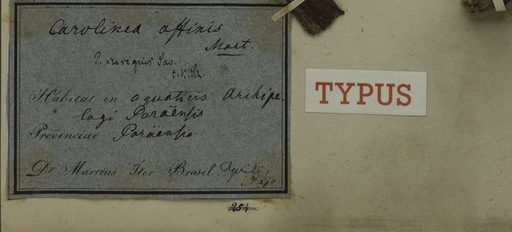 Carolinea affinis
Mart.
Habitat in aquaticis Archipe-
lagi Paraënsis
Provinciae Paraënsis
Dr Martius Iter Brasil.
TYPUS
254